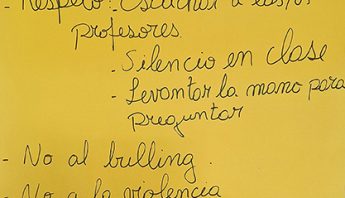 - Respeto: Escuchar a los/as
profesores
- Silencio en clase
- Levantar la mano para
preguntar
- No al bulling.
- No a la violencia